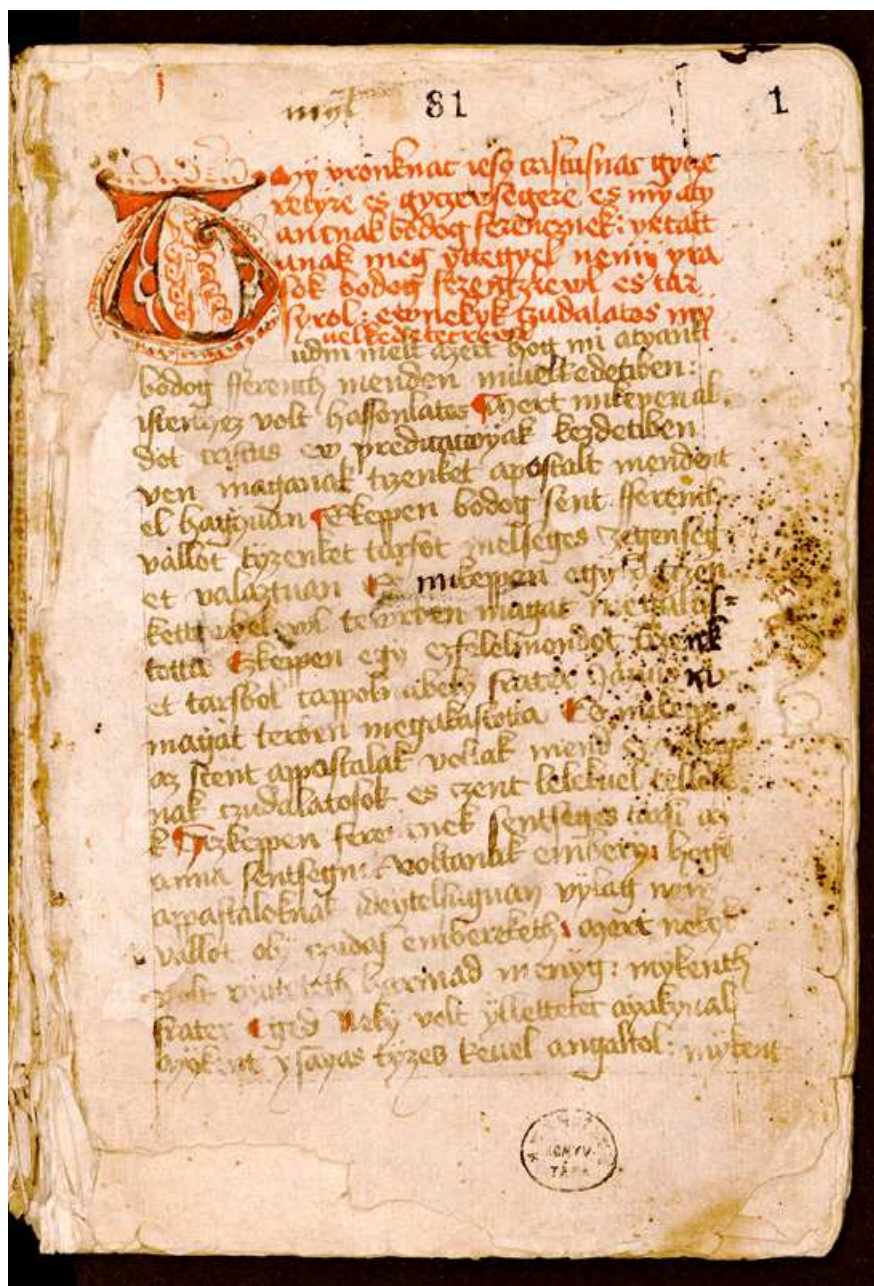 81 1
my vronknac ieso cristusnac gycze
retyre es gyczersegere es my aty
ancnak bodog ferencznek: vetatt
anak meg ynegyel nemy yra
sok bodog ferenczrewl es tar
syrol: ewnekyk czudalatos my
velkedetetrewl
udm mell azert hog mi atyank
bodog fferencz menden miuelkedetiben:
istenhez volt hassonlatos Mert mikepen ab
dot cristus ew predicacioyak kezdetiben
ven maganak tizenket apostalt mendent
el hagyuan Ekeppen bodog sent fferencz
vallot tyzenket tarsot melseges zegenseg
et valaztuan Es mikeppen egy a tizen
kettewbelewl tewrben magat
Ezkeppen egy ezfelelmondot tizenk
et tarsbol cappoli abely frater
magat torben megakastotta Es mikepp
az scent appostalak voltak mend
nak czudalatosok es zent lelekuel tellek
k Ezkeppen ferencnek sentseges tarsi
anna sentsegu voltanak embery: hogh
appastaloknak ideytelfuguan vylag nem
vallot oly czudas embereketh Mert nekyk
volt harmad menyg: mykenth
frater Eged Neky volt yllettetet ayakynal
ysayas tyzes keuel angaltol: mykent
KÖNYV
TÁRA